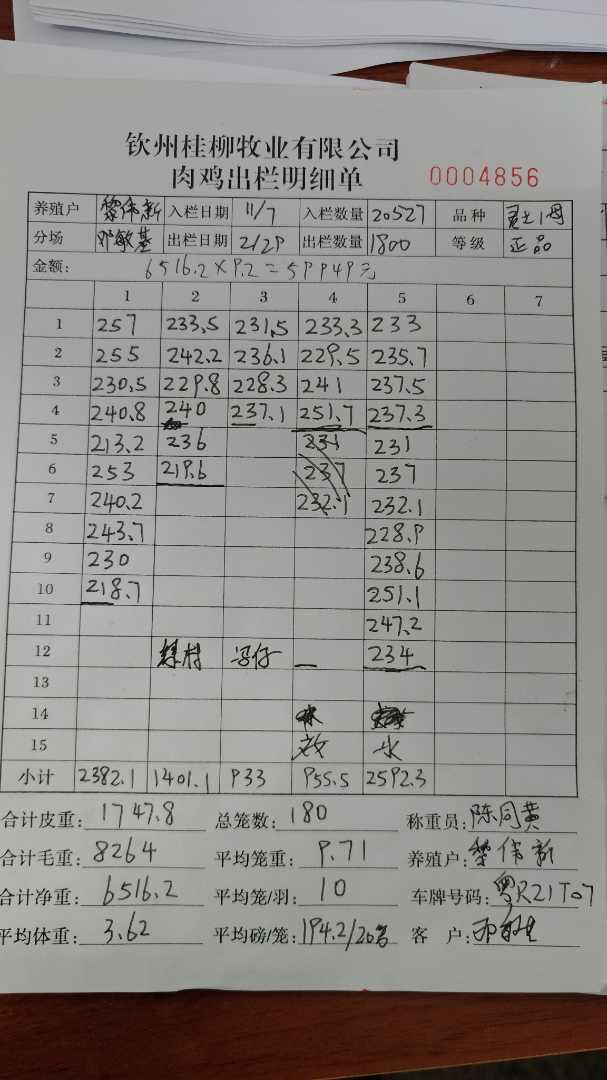 钦州桂柳牧业有限公司
肉鸡出栏明细单 0004856
养殖户 黎伟新 入栏日期 11/7 入栏数量 20527 品种
分场 邓敏基 出栏日期 2/29 出栏数量 1800 等级 正品
金额: 6516.2×9.2=59949元
1 2 3 4 5 6 7
1 257 233.5 231.5 233.3 233
2 255 242.2 236.1 229.5 235.7
3 230.5 229.8 228.3 241 237.5
4 240.8 240 237.1 251.7 237.3
5 213.2 236 231 231
6 253 219.6 237 237
7 240.2 232.1 232.1
8 243.7 228.9
9 230 238.6
10 218.7 251.1
11 247.2
12 冯仔 234
13
14
15 水
小计 2382.1 1401.1 933 955.5 2592.3
合计皮重: 1747.8 总笼数: 180 称重员: 陈同黄
合计毛重: 8264 平均笼重: 9.71 养殖户: 黎伟新
合计净重: 6516.2 平均笼/羽: 10 车牌号码: 粤R21T07
平均体重: 3.62 平均磅/笼: 194.2/20 客户: